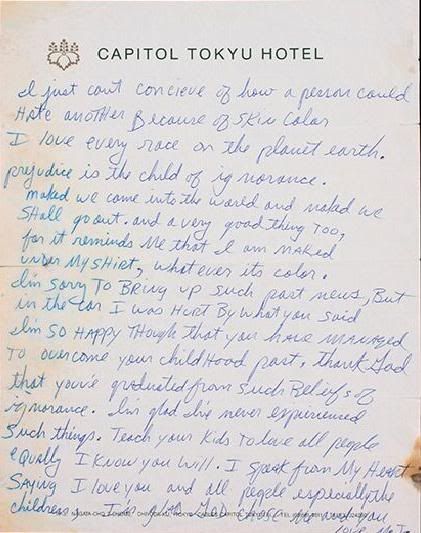 CAPITOL TOKYU HOTEL
I just cant concieve of how a person could
Hate another Because of skin Color
I love every race on the planet earth.
prejudice is the child of ignorance.
Naked we come into the world and naked we
Shall go out. and a very good thing Too,
for it reminds Me that I am Naked
under My Shirt, whatever its color.
I'm sorry To Bring up such past news, But
in the car I was Hurt By what you said
I'm SO HAPPY Though that you have MANAGED
To overcome your childhood past. thank God
that you've graduated from such Beliefs of
ignorance. I'm glad I've never experienced
Such things. Teach your Kids to love all people
equally I know you will. I speak from My Heart
saying I love you and all people especially the
children, I'm glad God chose and you
love